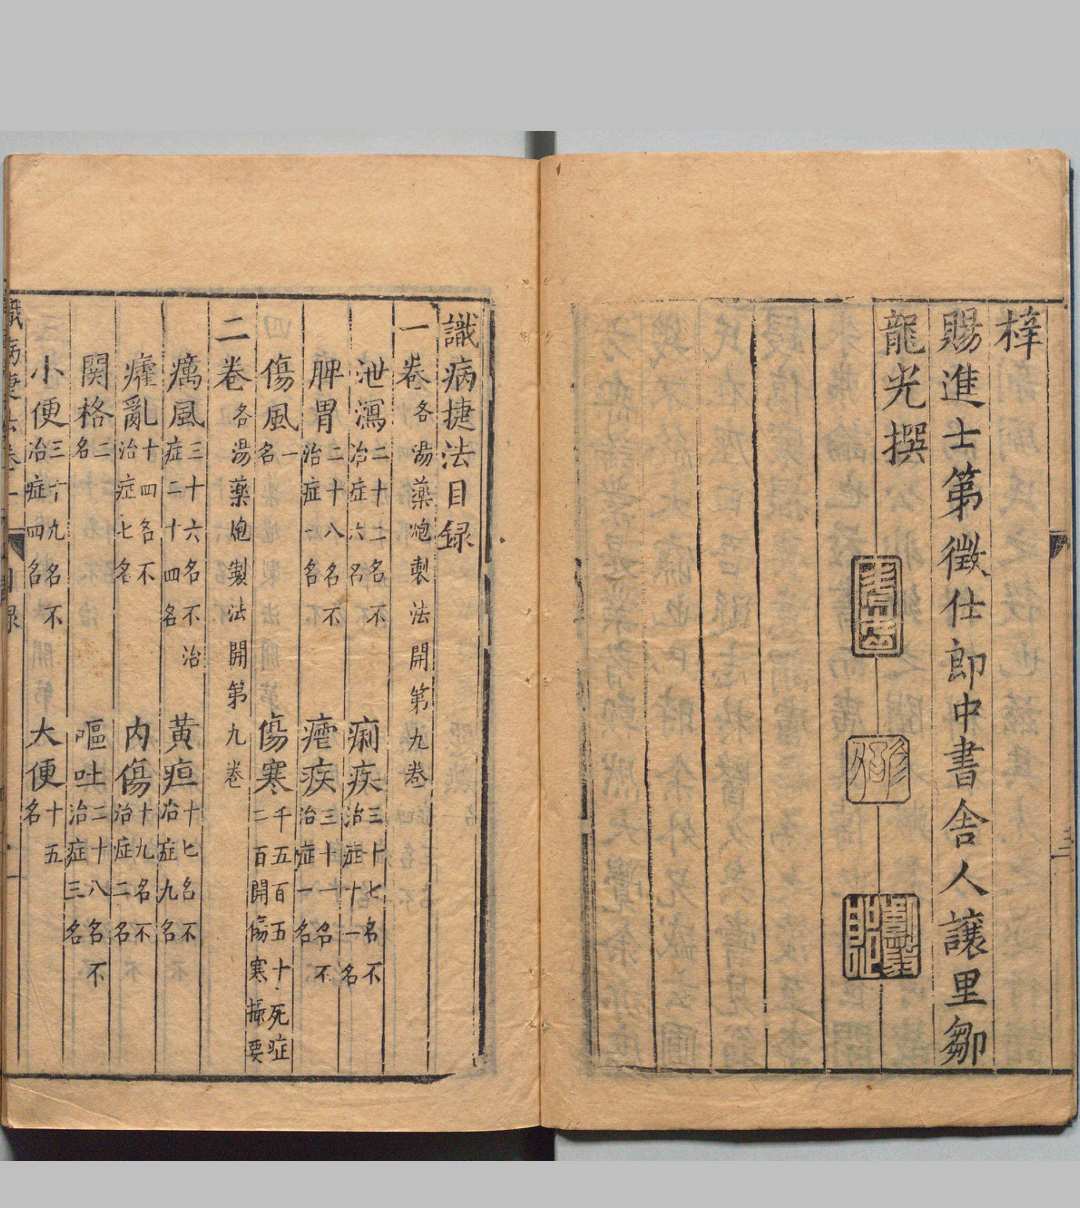 梓
賜進士第徵仕郎中書舍人讓里鄒
龍光撰
識病捷法目録
一卷各湯藥炮製法開第九卷
泄瀉二十二名不治症六名
痢疾三十七名不治症十一名
脾胃二十八名不治症一名
瘧疾三十一名不治症一名
傷風一名
傷寒千五百五十死症二百開傷寒撮要
二卷各湯藥炮製法開第九卷
癘風三十六名不治症二十四名
黃疸十七名不治症九名
癨亂十四名不治症七名
内傷十九名不治症二名
関格二名
嘔吐二十八名不治症三名
小便三十九名不治症四名
大便十五名
識病捷法卷一 目録